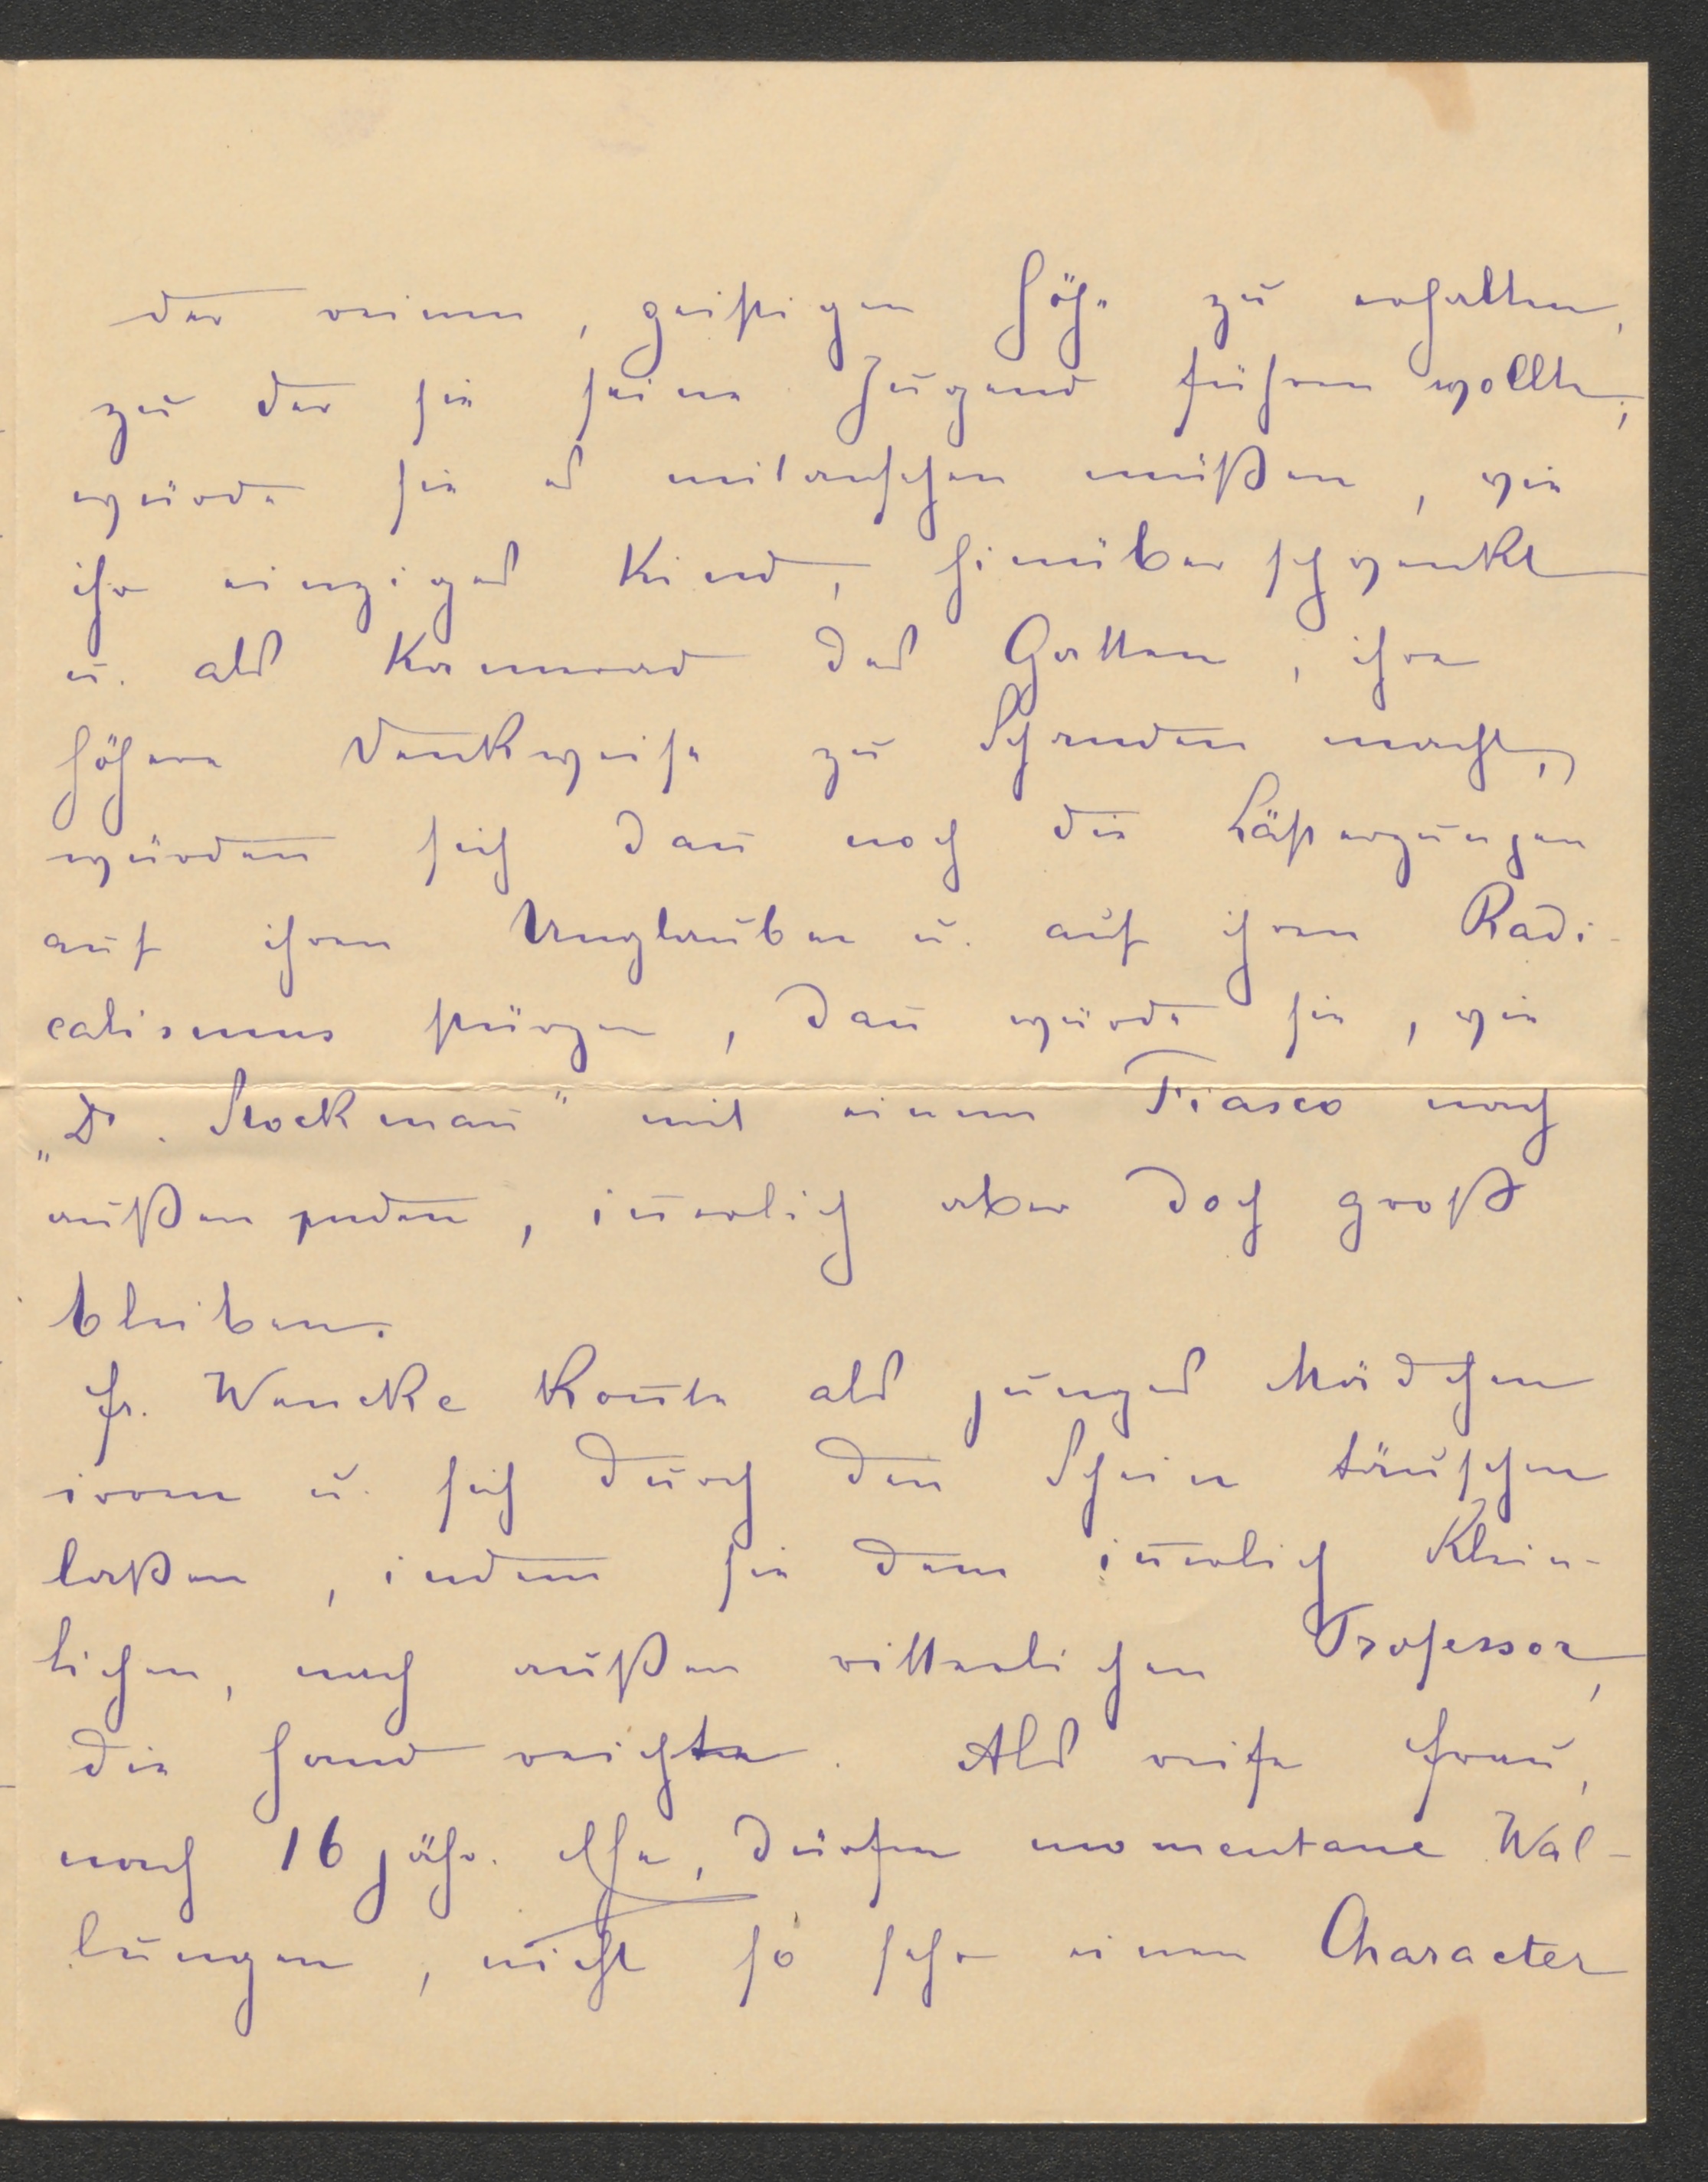 der reinen, geistigen Höhe zu erhalten,
zu der sie seine Jugend führen wollte;
würde sie es mitansehen müßen, wie
ihr einziges Kind, hinüber schwenkt
u. als Kamerad des Gatten, ihre
höhere Denkweise zu Schanden macht,
würden sich dan̄ noch die Lästerzungen
auf ihren Unglauben u. auf ihren Radi-
calismus stürzen, dan̄ würde sie, wie
„Dr. Stockman̄" mit einem Fiasco nach
außen enden, in̄erlich aber doch groß
bleiben.
Fr. Wencke kon̄te als junges Mädchen
irren u. sich durch den Schein täuschen
laßen, indem sie dem in̄erlich Klein-
lichen, nach außen ritterlichen Professor,
die Hand reichte. Als reife Frau,
nach 16 jähr. Ehe, dürfen momentane Wal-
lungen, nicht so sehr einen Character